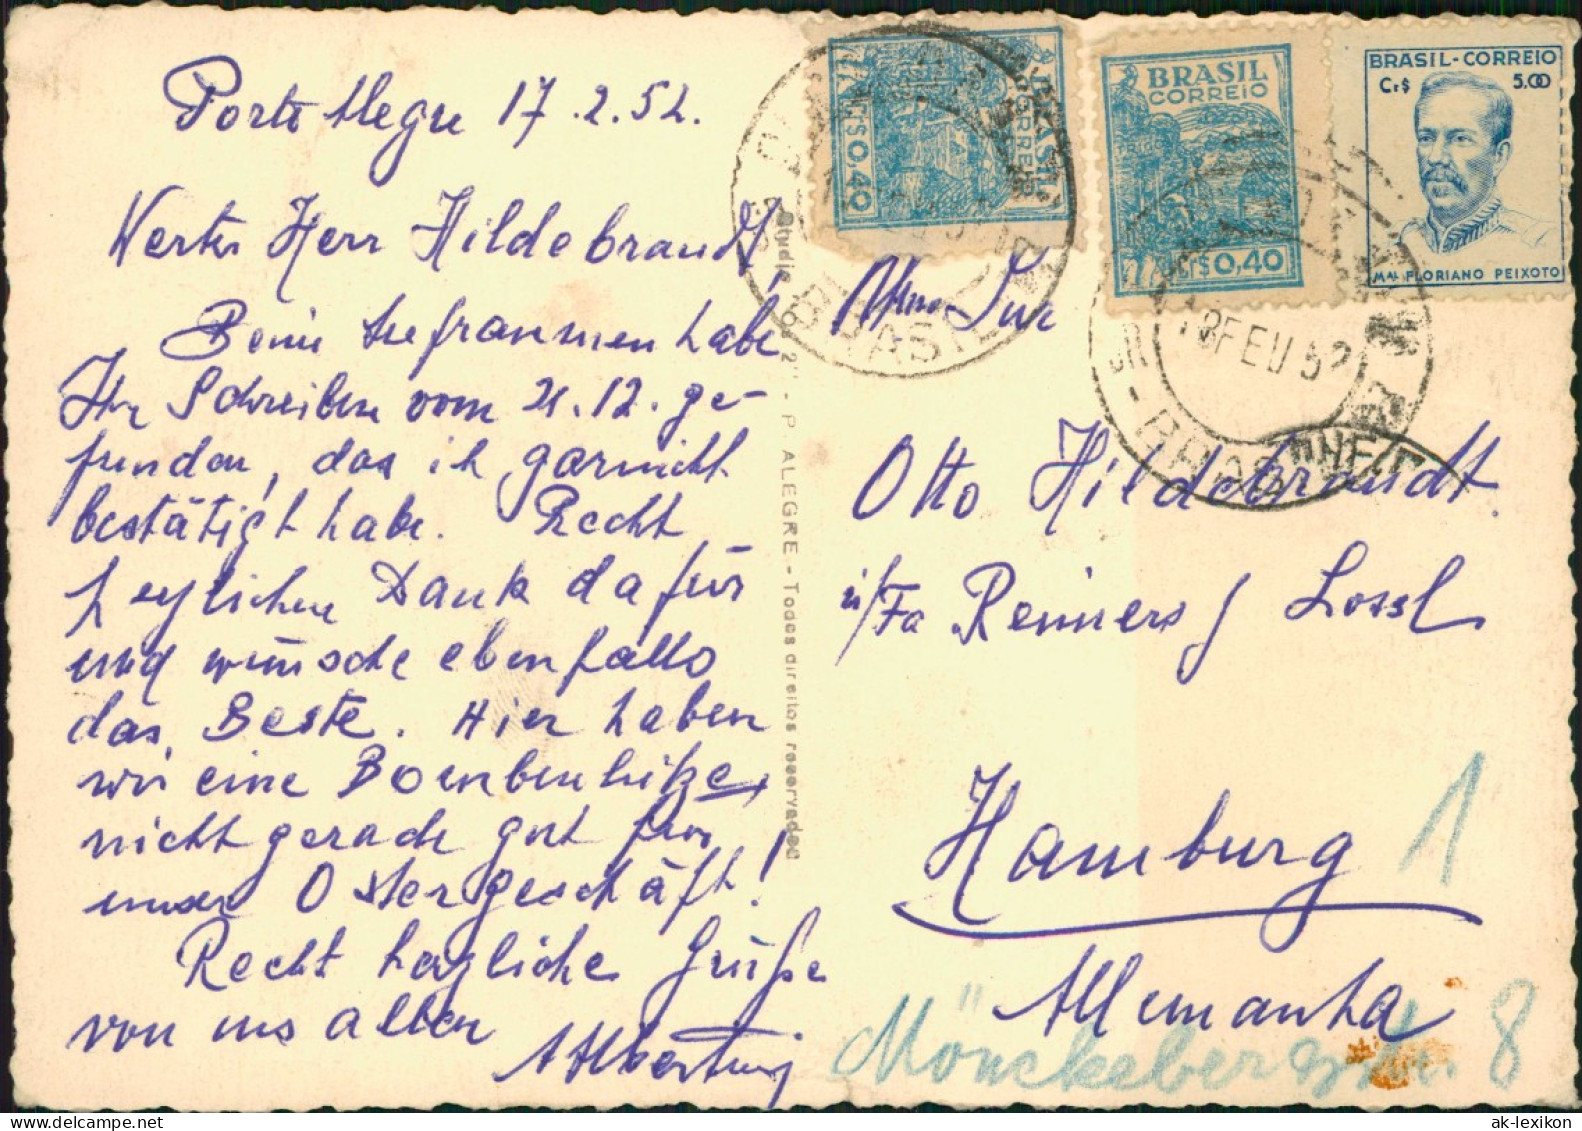 Porto Alegre 17.2.52.
Werter Herr Hildebrandt!
Beim Aufräumen habe
Ihr Schreiben vom 21.12. ge-
funden, das ich garnicht
bestätigt habe. Recht
herzlichen Dank dafür
und wünsche ebenfalls
das Beste. Hier haben
wir eine Bombenhitze,
nicht gerade gut für
unser Ostergeschäft!
Recht herzliche Grüße
von uns allen
P. ALEGRE - Todos direitos reservados
BRASIL
CORREIO
CR$0,40
BRASIL
CORREIO
CR$0,40
BRASIL-CORREIO
Cr$ 5.00
MAL FLORIANO PEIXOTO
BRASIL
18 FEV 52
Otto Hildebrandt.
i/Fa Reiners &
Hamburg 1
Allemanha
Mönckebergstr. 8
ak-lexikon